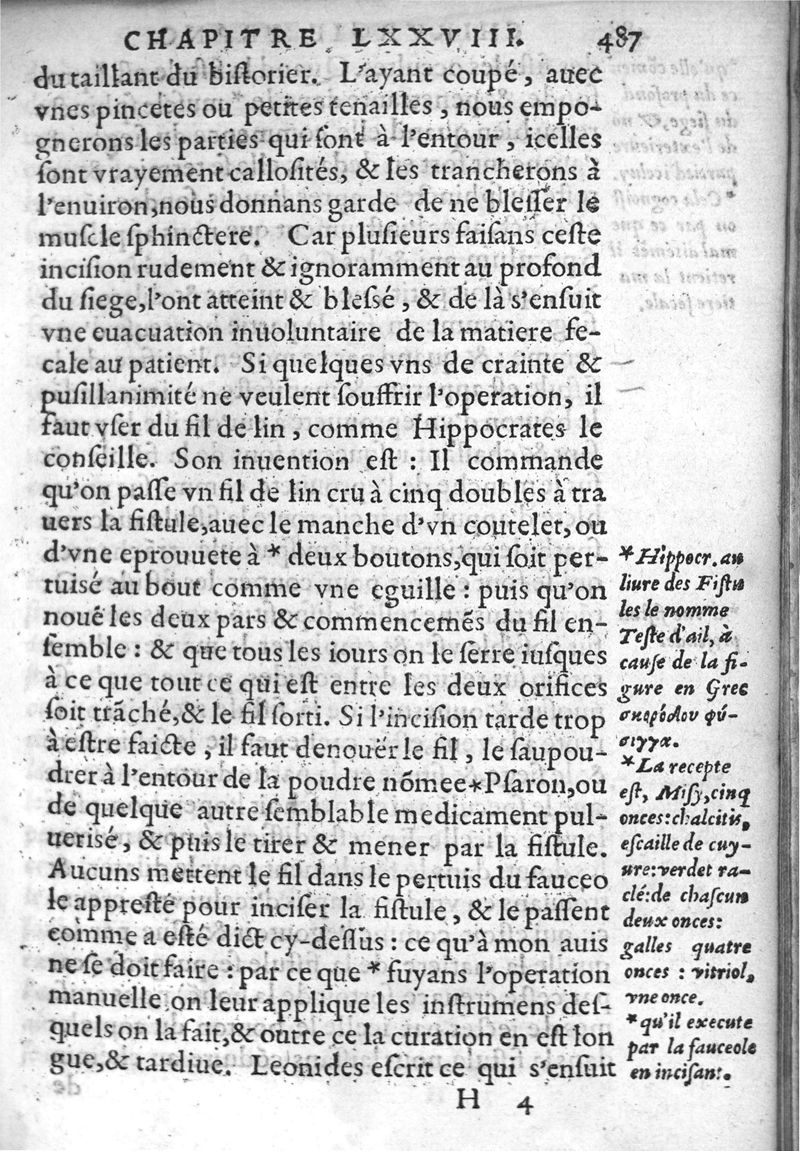 CHAPITRE LXXVIII. 487
du taillant du bistorier. L'ayant coupé, auec
vnes pincetes ou petites tenailles, nous empo-
gnerons les parties qui sont à l'entour, icelles
sont vrayement callosités, & les trancherons à
l'enuiron,nous donnans garde de ne blesser le
muscle sphinctere. Car plusieurs faisans ceste
incision rudement & ignoramment au profond
du siege,l'ont atteint & blessé, & de là s'ensuit
vne euacuation inuoluntaire de la matiere fe-
cale au patient. Si quelques vns de crainte &
pusillanimité ne veulent souffrir l'operation, il
faut vser du fil de lin, comme Hippocrates le
conseille. Son inuention est : Il commande
qu'on passe vn fil de lin cru à cinq doubles à tra
uers la fistule,auec le manche d'vn coutelet, ou
d'vne eprouuete à * deux boutons,qui soit per-
tuisé au bout comme vne eguille : puis qu'on
noué les deux pars & commencemẽs du fil en-
semble : & que tous les iours on le serre iusques
à ce que tout ce qui est entre les deux orifices
soit trãché,& le fil sorti. Si l'incision tarde trop
à estre faicte, il faut denouër le fil, le saupou-
drer à l'entour de la poudre nõmee*Psaron,ou
de quelque autre semblable medicament pul-
uerisé, & puis le tirer & mener par la fistule.
Aucuns mettent le fil dans le pertuis du fauceo
le appresté pour inciser la fistule, & le passent
comme a esté dict cy-dessus : ce qu'à mon auis
ne se doit faire : par ce que * fuyans l'operation
manuelle on leur applique les instrumens des-
quels on la fait,& outre ce la curation en est lon
gue,& tardiue. Leonides escrit ce qui s'ensuit
H 4
* Hippocr. au
liure des Fistu
les le nomme
Teste d'ail, à
cause de la fi-
gure en Grec
σκορόδου φύ-
σιγγα.
*La recepte
est, Misy,cinq
onces:chalcitis,
escaille de cuy-
ure:verdet ra-
clé:de chascun
deux onces:
galles quatre
onces : vitriol,
vne once.
* qu'il execute
par la fauceole
en incisant.